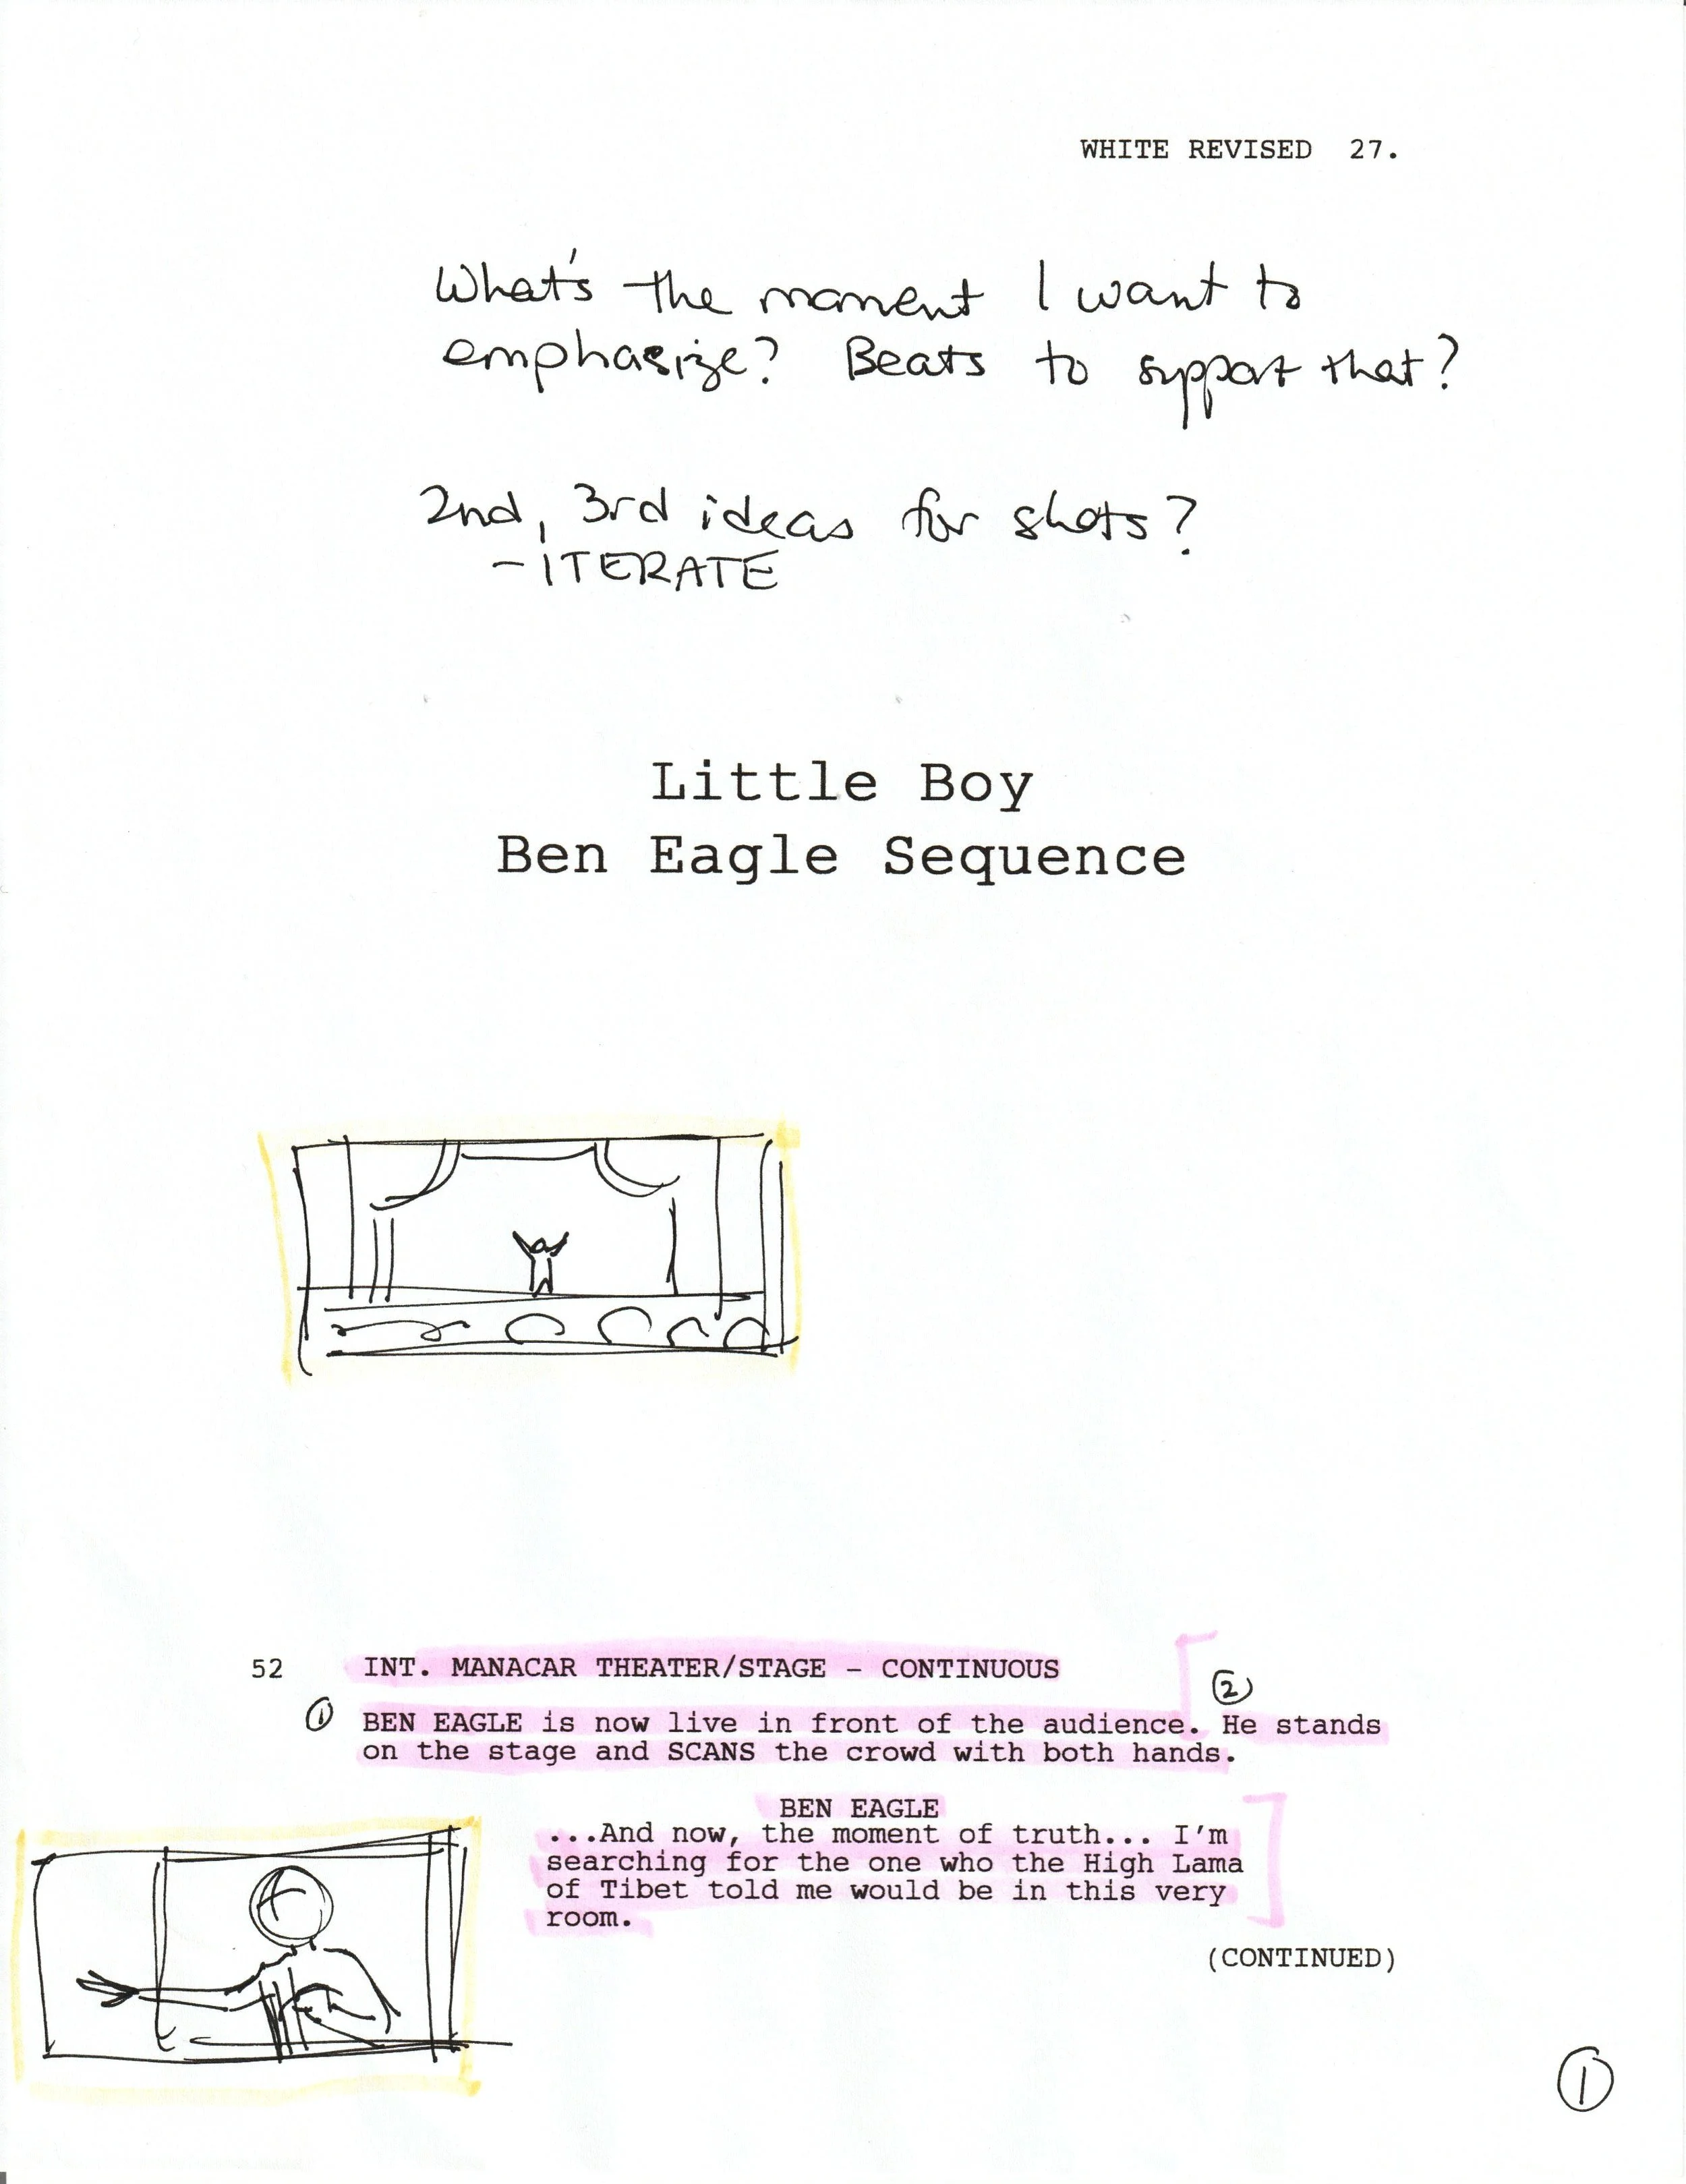 WHITE REVISED 27.
What's the moment I want to
emphasize? Beats to support that?
2nd, 3rd ideas for shots?
- ITERATE
Little Boy
Ben Eagle Sequence
52 INT. MANACAR THEATER/STAGE - CONTINUOUS
②
① BEN EAGLE is now live in front of the audience. He stands
on the stage and SCANS the crowd with both hands.
BEN EAGLE
...And now, the moment of truth... I'm
searching for the one who the High Lama
of Tibet told me would be in this very
room.
(CONTINUED)
①